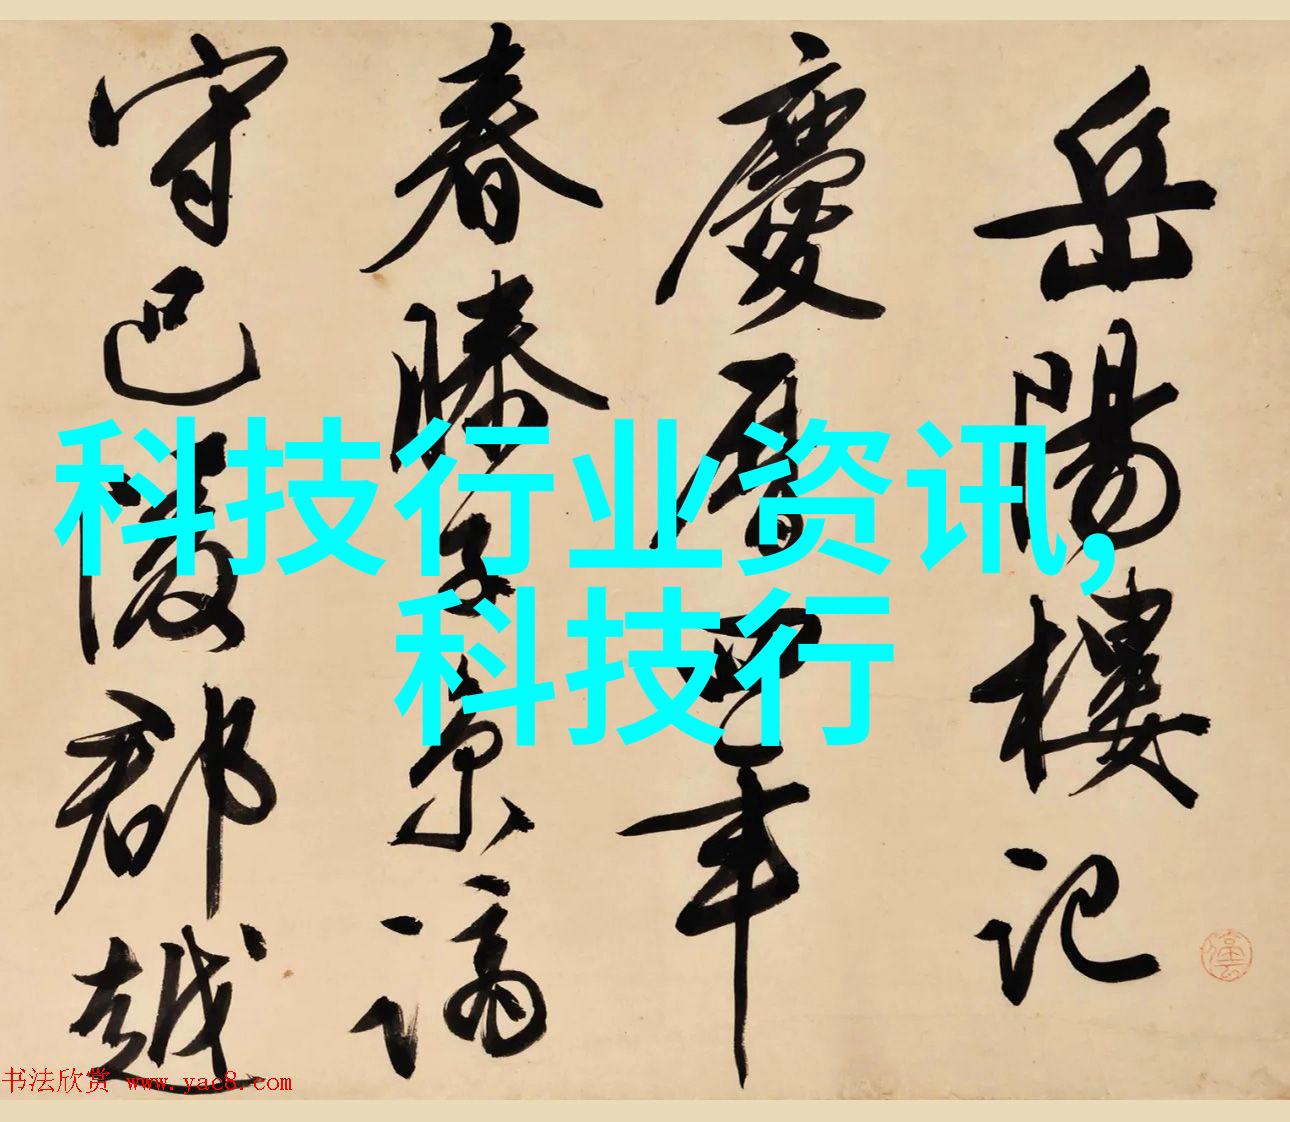 岳陽樓記
慶曆四年
春滕子京謫
守巴陵郡越
科技行业资讯,
科技行
书法欣赏 www.yac8.com